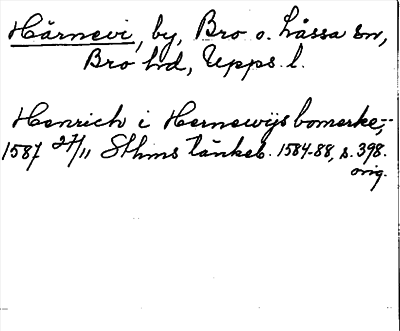 Härnevi, by, Bro o. Låssa sn,
Bro hd, Upps. l.
Henrich i Hernewijs bomerke;-
1587 27/11 Sthms tänkeb. 1584-88, s. 398.
orig.